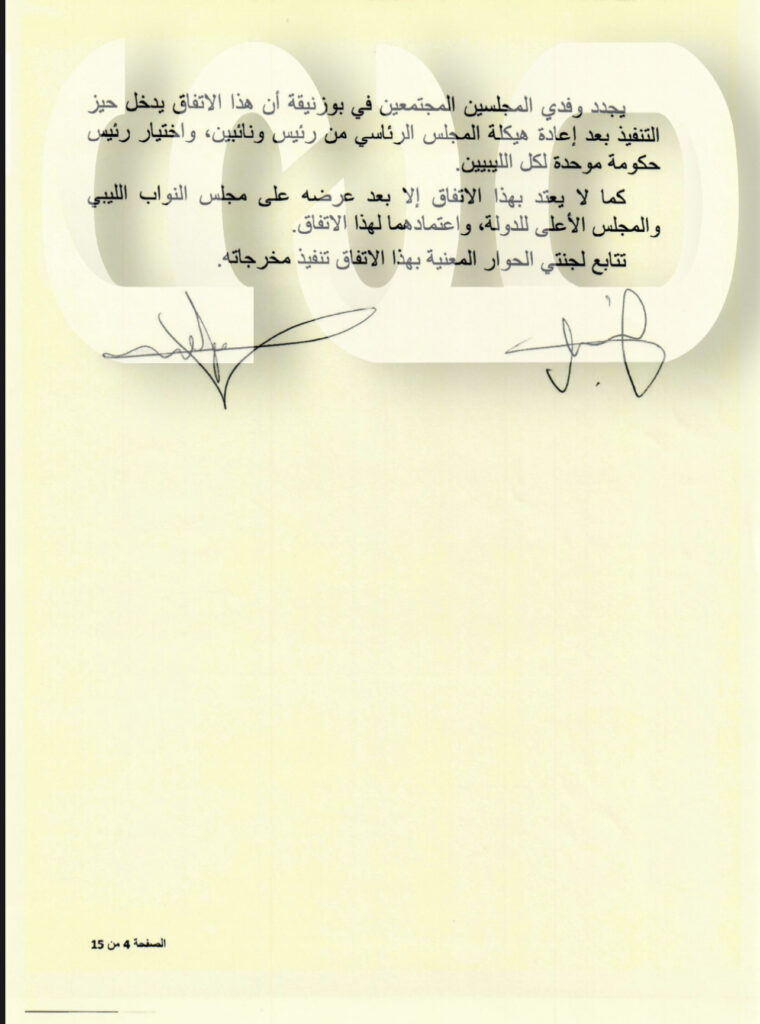 يجدد وفدي المجلسين المجتمعين في بوزنيقة أن هذا الاتفاق يدخل حيز
التنفيذ بعد إعادة هيكلة المجلس الرئاسي من رئيس ونائبين، واختيار رئيس
حكومة موحدة لكل الليبيين.
كما لا يعتد بهذا الاتفاق إلا بعد عرضه على مجلس النواب الليبي
والمجلس الأعلى للدولة، واعتمادهما لهذا الاتفاق.
تتابع لجنتي الحوار المعنية بهذا الاتفاق تنفيذ مخرجاته.
الصفحة 4 من 15